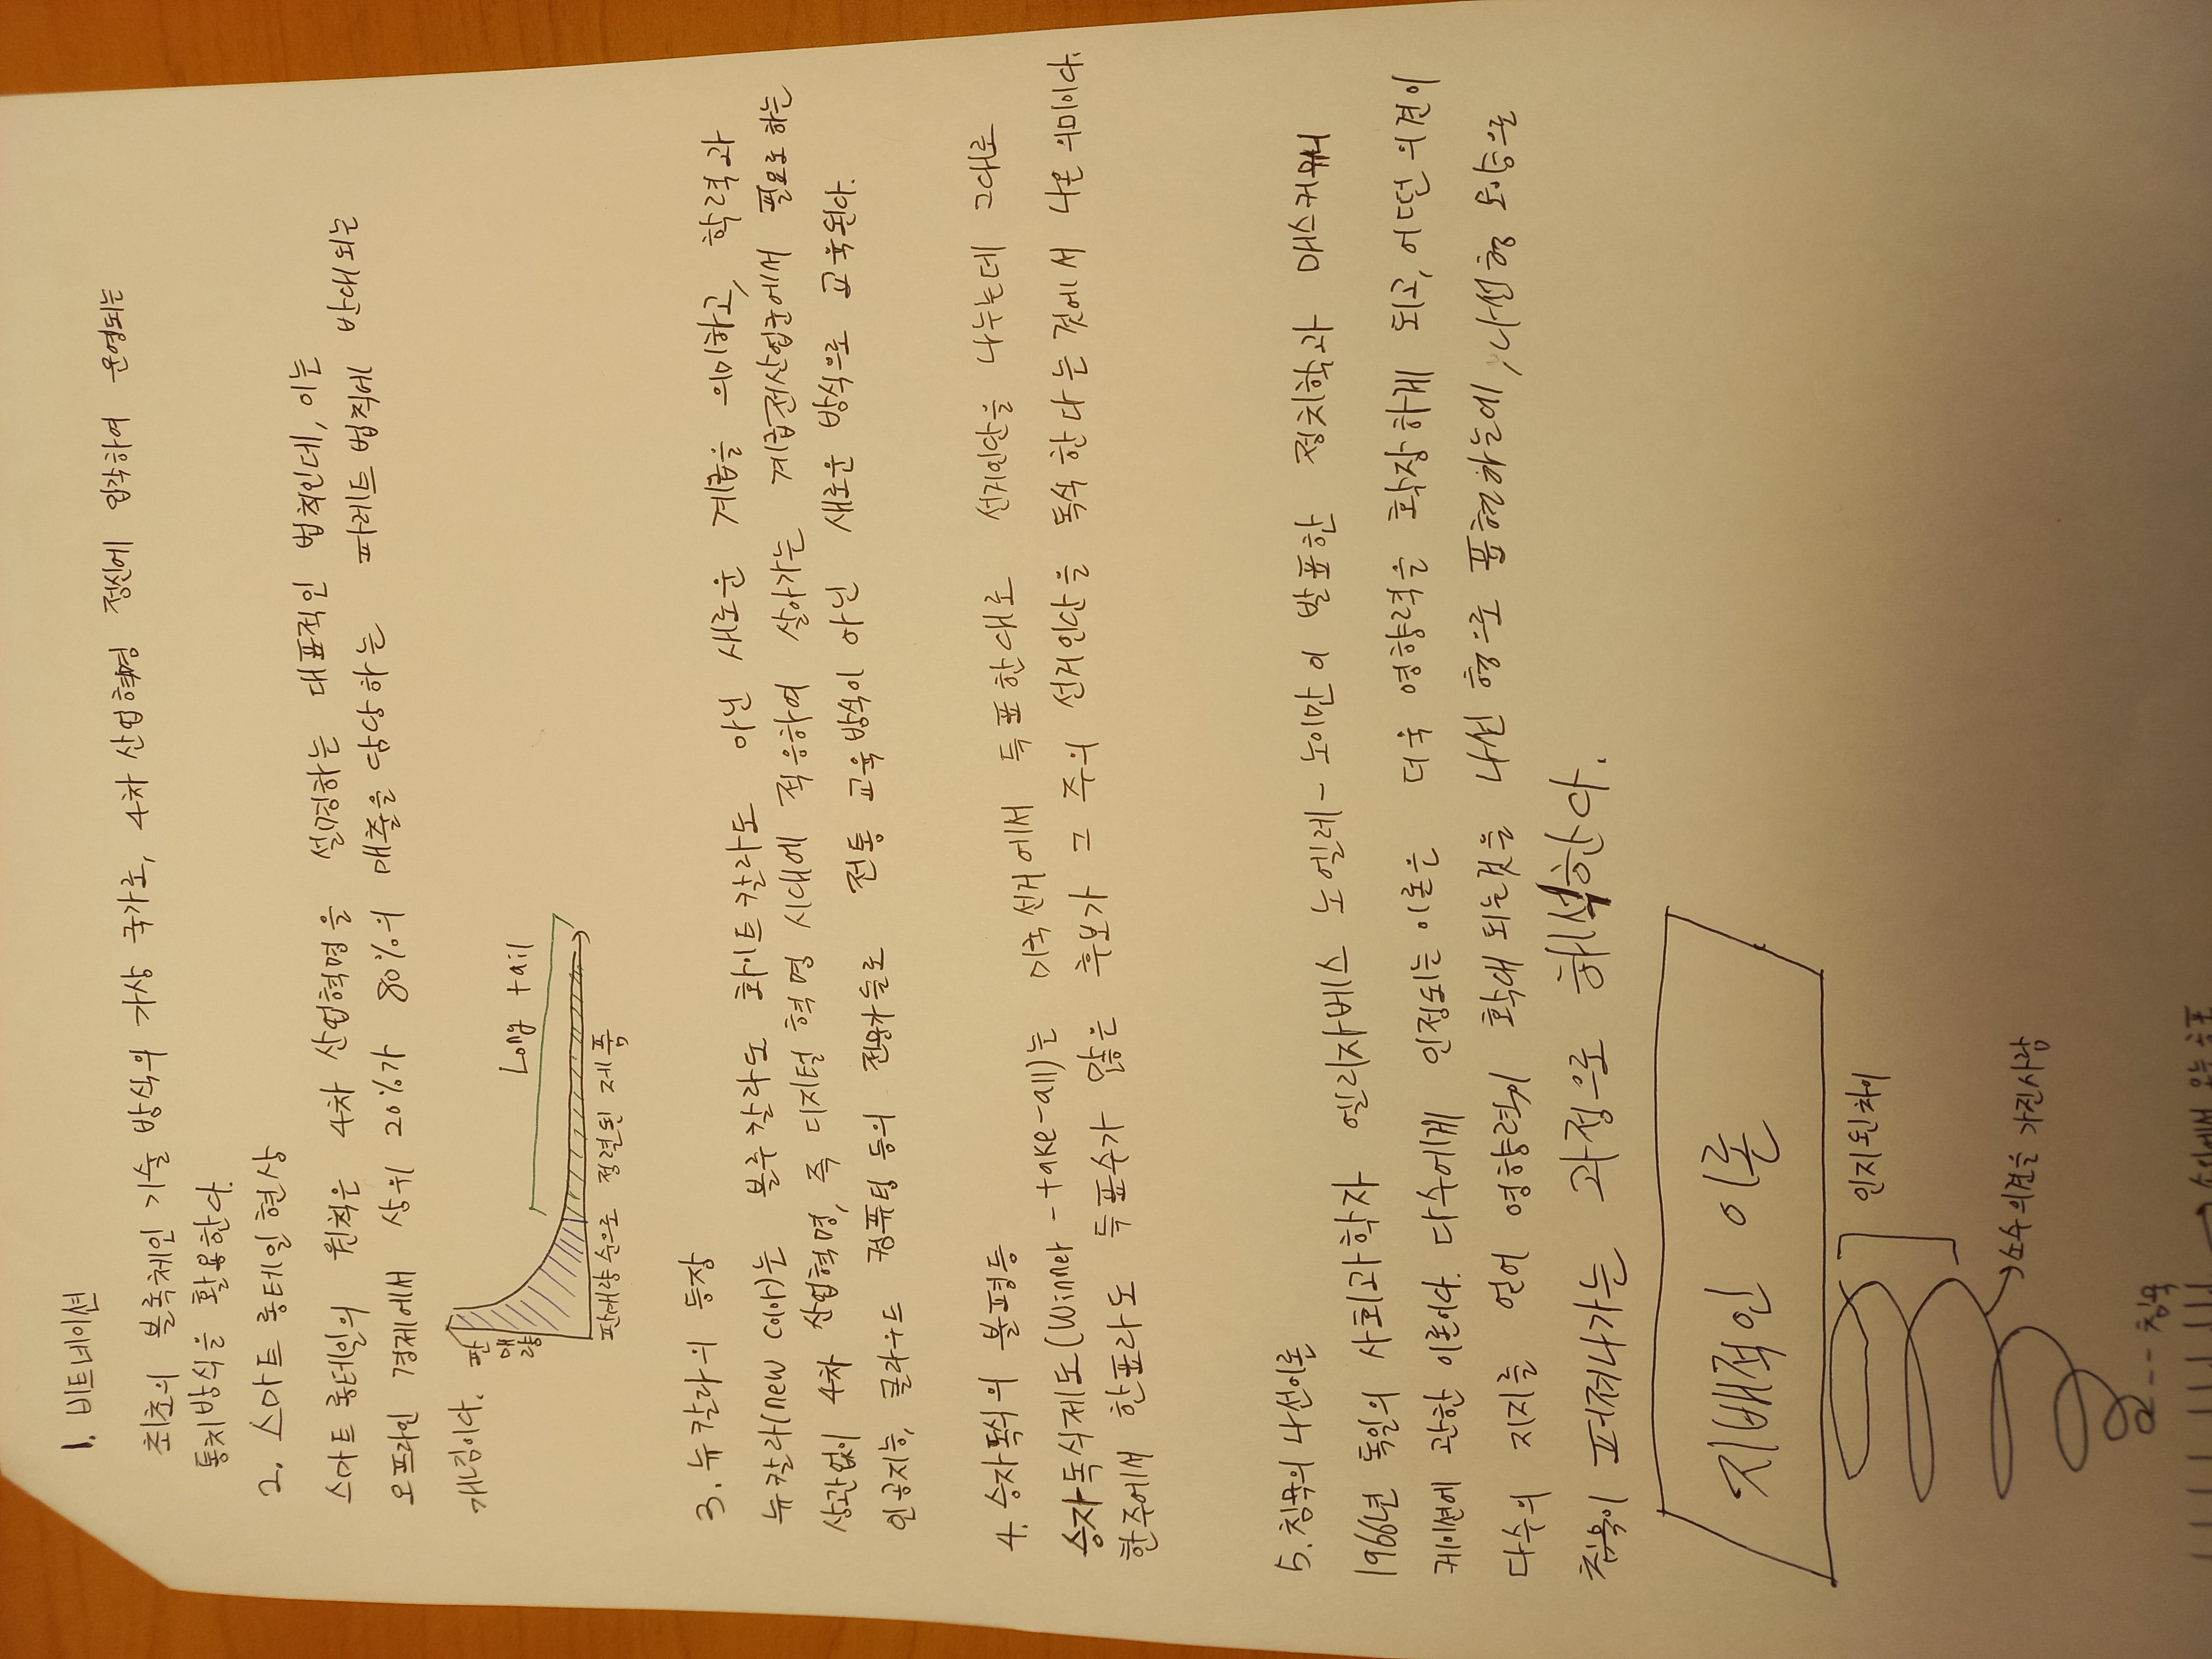 1. 비트네이션
최초의 블록체인 기술 방식의 가상 국가로, 4차 산업혁명 정신에 입각하여 운영되는
통치방식을 활용한다.
2. 스마트 롱테일 현상
스마트 롱테일의 원칙은 4차 산업혁명을 설명하는 대표적인 법칙인데, 이는
오프라인 경제에서 상위 20%가 80%의 매출을 담당하는 파레트 법칙에 반대되는
개념이다.
판매량
Long tail
판매량 순으로 정렬된 제품
3. 뉴칼라의 등장
뉴칼라(new collar)는 블루칼라도 화이트칼라도 아닌 새로운 계층을 의미하고, 학력과
상관없이 4차 산업혁명, 즉 디지털 혁명 시대에 적응하여 살아가는 계층전산업군에게 필요로하는
인공지능, 클라우드 컴퓨팅 등의 전문가들로 전통 교육방식이 아닌 새로운 방식으로 교육된다.
4. 승자독식의 불평등
승자독식제도(Winner-take-all)는 미국 선거에서 득표한대로 선거인단을 나누는데 그대로
한주에서 한표라도 득표수가 많은 후보가 그 주의 선거인단을 독식 한다는 것에서 나온 의미이다.
5. 침묵의 나선이론
1966년 독일의 사회과학자 엘리자베스 노엘레-노이만이 발표한 정치학과 매스커뮤니
케이션에 관한 이론이다. 다수에게 인정되는 이론은 더욱 영향력을 확장하게 되고, 어떤 의견이
다수의 지지를 얻어 영향력이 확대 되는것을 나선 형으로 표현하는데, 나선형 모양을
침묵이 퍼져나가는 과정으로 해석한다.
지배적인 이론
인지된차이
소수의견을 가진사람
침묵